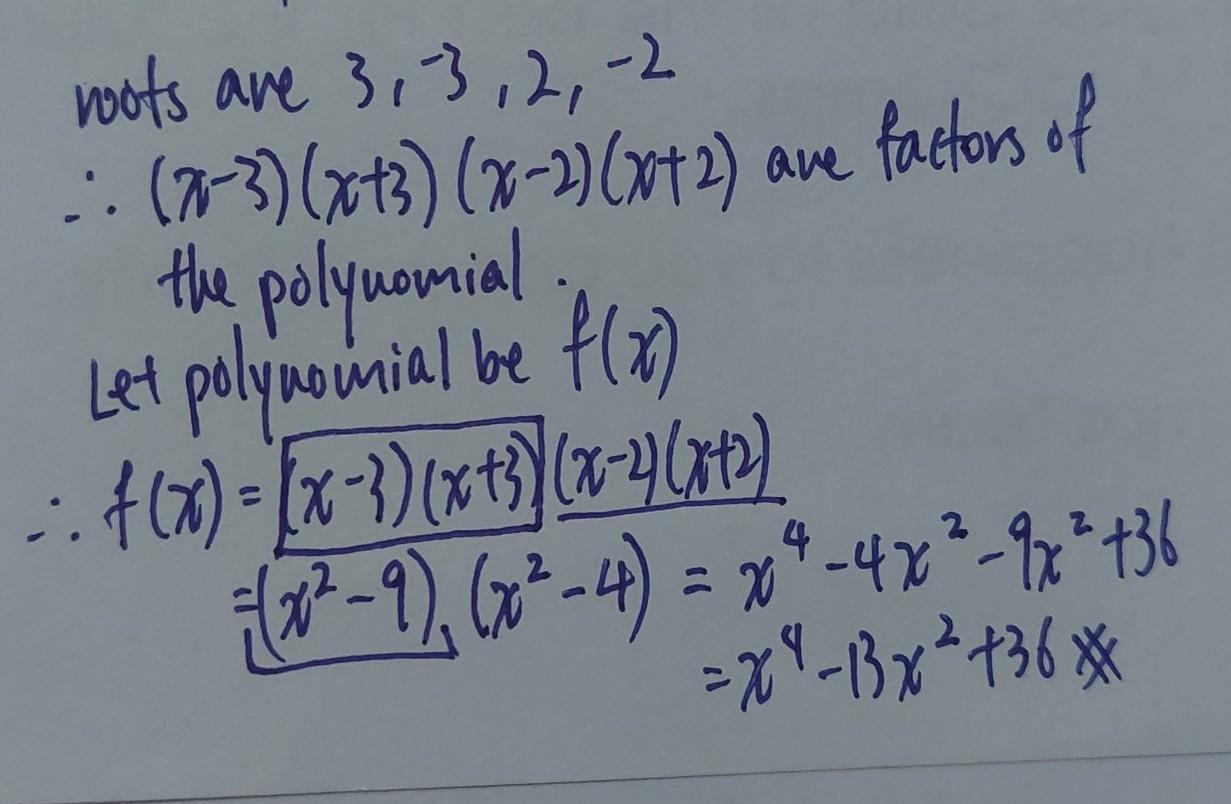 roots are 3, -3, 2, -2
∴ (x-3)(x+3)(x-2)(x+2) are factors of
the polynomial.
Let polynomial be f(x)
∴ f(x) = (x-3)(x+3)(x-2)(x+2)
=(x²-9)(x²-4) = x⁴-4x²-9x²+36
=x⁴-13x²+36